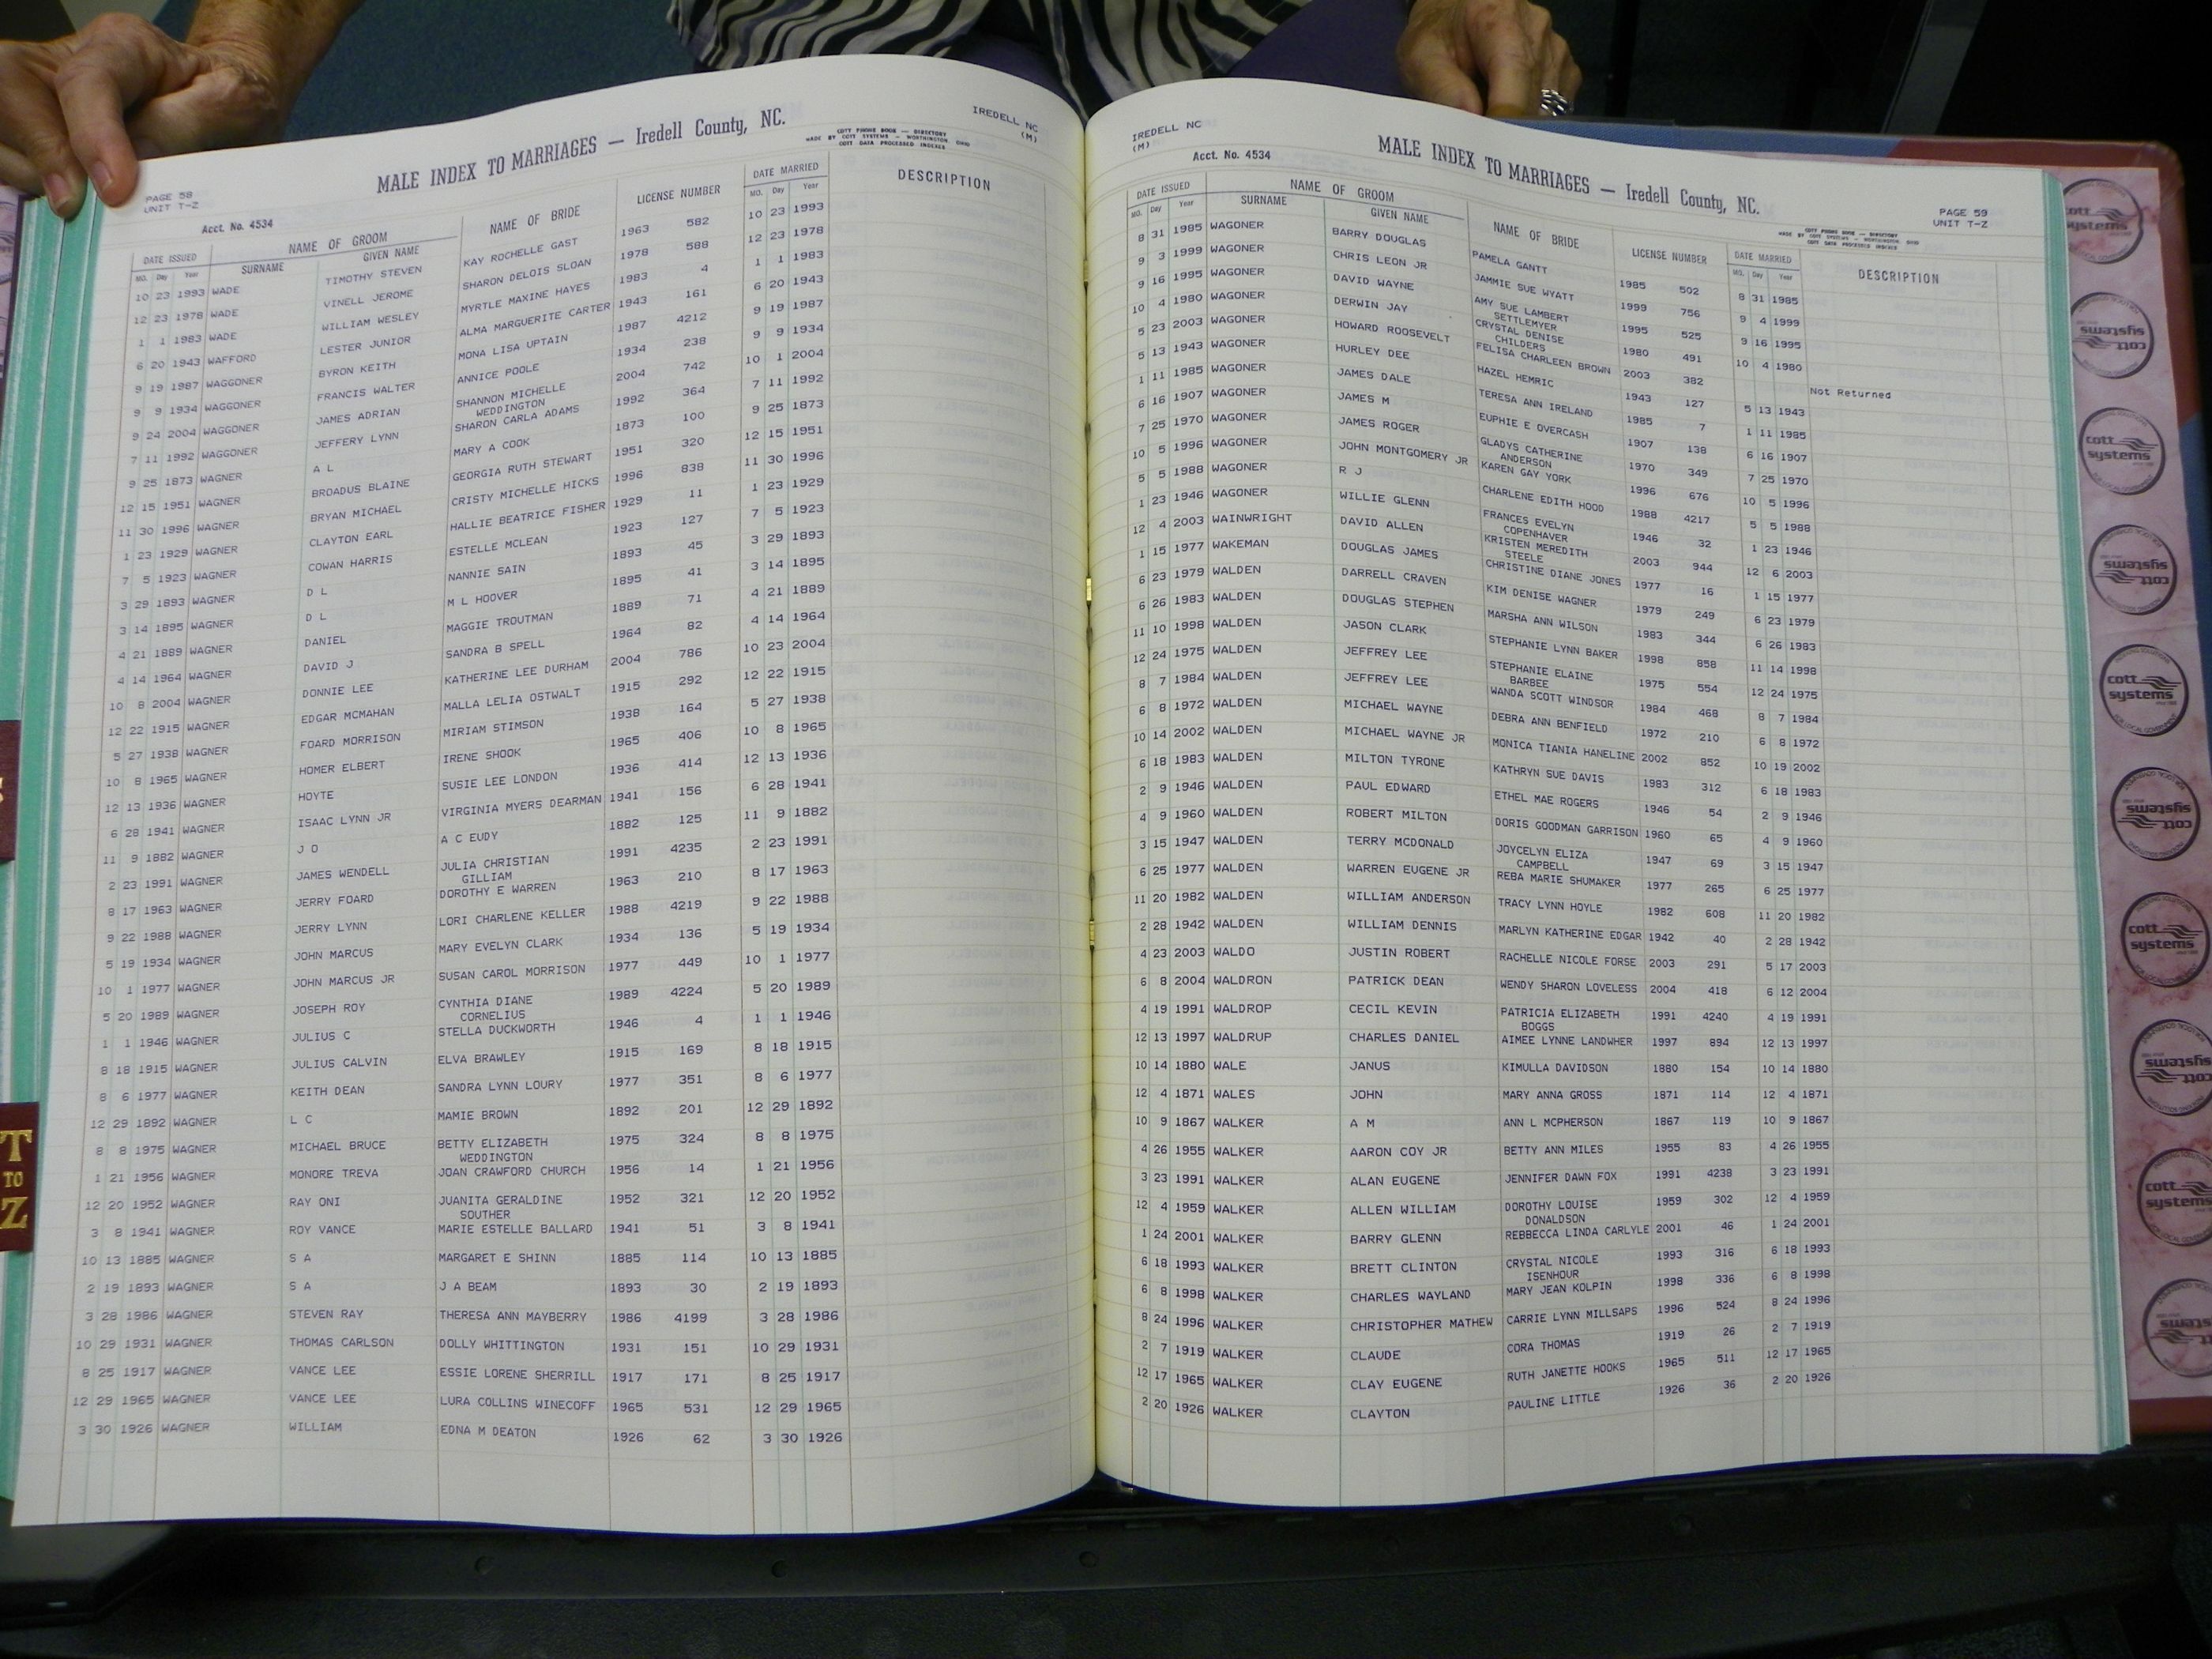 IREDELL NC
(M)
MALE INDEX TO MARRIAGES — Iredell County, NC.
COTT PHONE BOOK — DIRECTORY
MADE BY COTT SYSTEMS — WORTHINGTON, OHIO
COTT DATA PROCESSED INDEXES
PAGE 58
UNIT T-Z
Acct. No. 4534
DATE ISSUED NAME OF GROOM NAME OF BRIDE LICENSE NUMBER DATE MARRIED DESCRIPTION
MO. Day Year SURNAME GIVEN NAME MO. Day Year
10 23 1993 WADE TIMOTHY STEVEN KAY ROCHELLE GAST 1963 582 10 23 1993
12 23 1978 WADE VINELL JEROME SHARON DELOIS SLOAN 1978 588 12 23 1978
1 1 1983 WADE WILLIAM WESLEY MYRTLE MAXINE HAYES 1983 4 1 1 1983
6 20 1943 WAFFORD LESTER JUNIOR ALMA MARGUERITE CARTER 1943 161 6 20 1943
9 19 1987 WAGGONER BYRON KEITH MONA LISA UPTAIN 1987 4212 9 19 1987
9 9 1934 WAGGONER FRANCIS WALTER ANNICE POOLE 1934 238 9 9 1934
9 24 2004 WAGGONER JAMES ADRIAN SHANNON MICHELLE 2004 742 10 1 2004
WEDDINGTON
7 11 1992 WAGGONER JEFFERY LYNN SHARON CARLA ADAMS 1992 364 7 11 1992
9 25 1873 WAGNER A L MARY A COOK 1873 100 9 25 1873
12 15 1951 WAGNER BROADUS BLAINE GEORGIA RUTH STEWART 1951 320 12 15 1951
11 30 1996 WAGNER BRYAN MICHAEL CRISTY MICHELLE HICKS 1996 838 11 30 1996
1 23 1929 WAGNER CLAYTON EARL HALLIE BEATRICE FISHER 1929 11 1 23 1929
7 5 1923 WAGNER COWAN HARRIS ESTELLE MCLEAN 1923 127 7 5 1923
3 29 1893 WAGNER D L NANNIE SAIN 1893 45 3 29 1893
3 14 1895 WAGNER D L M L HOOVER 1895 41 3 14 1895
4 21 1889 WAGNER DANIEL MAGGIE TROUTMAN 1889 71 4 21 1889
4 14 1964 WAGNER DAVID J SANDRA B SPELL 1964 82 4 14 1964
10 8 2004 WAGNER DONNIE LEE KATHERINE LEE DURHAM 2004 786 10 23 2004
12 22 1915 WAGNER EDGAR MCMAHAN MALLA LELIA OSTWALT 1915 292 12 22 1915
5 27 1938 WAGNER FOARD MORRISON MIRIAM STIMSON 1938 164 5 27 1938
10 8 1965 WAGNER HOMER ELBERT IRENE SHOOK 1965 406 10 8 1965
12 13 1936 WAGNER HOYTE SUSIE LEE LONDON 1936 414 12 13 1936
6 28 1941 WAGNER ISAAC LYNN JR VIRGINIA MYERS DEARMAN 1941 156 6 28 1941
11 9 1882 WAGNER J O A C EUDY 1882 125 11 9 1882
2 23 1991 WAGNER JAMES WENDELL JULIA CHRISTIAN 1991 4235 2 23 1991
GILLIAM
8 17 1963 WAGNER JERRY FOARD DOROTHY E WARREN 1963 210 8 17 1963
9 22 1988 WAGNER JERRY LYNN LORI CHARLENE KELLER 1988 4219 9 22 1988
5 19 1934 WAGNER JOHN MARCUS MARY EVELYN CLARK 1934 136 5 19 1934
10 1 1977 WAGNER JOHN MARCUS JR SUSAN CAROL MORRISON 1977 449 10 1 1977
5 20 1989 WAGNER JOSEPH ROY CYNTHIA DIANE 1989 4224 5 20 1989
CORNELIUS
1 1 1946 WAGNER JULIUS C STELLA DUCKWORTH 1946 4 1 1 1946
8 18 1915 WAGNER JULIUS CALVIN ELVA BRAWLEY 1915 169 8 18 1915
8 6 1977 WAGNER KEITH DEAN SANDRA LYNN LOURY 1977 351 8 6 1977
12 29 1892 WAGNER L C MAMIE BROWN 1892 201 12 29 1892
8 8 1975 WAGNER MICHAEL BRUCE BETTY ELIZABETH 1975 324 8 8 1975
WEDDINGTON
1 21 1956 WAGNER MONORE TREVA JOAN CRAWFORD CHURCH 1956 14 1 21 1956
12 20 1952 WAGNER RAY ONI JUANITA GERALDINE 1952 321 12 20 1952
SOUTHER
3 8 1941 WAGNER ROY VANCE MARIE ESTELLE BALLARD 1941 51 3 8 1941
10 13 1885 WAGNER S A MARGARET E SHINN 1885 114 10 13 1885
2 19 1893 WAGNER S A J A BEAM 1893 30 2 19 1893
3 28 1986 WAGNER STEVEN RAY THERESA ANN MAYBERRY 1986 4199 3 28 1986
10 29 1931 WAGNER THOMAS CARLSON DOLLY WHITTINGTON 1931 151 10 29 1931
8 25 1917 WAGNER VANCE LEE ESSIE LORENE SHERRILL 1917 171 8 25 1917
12 29 1965 WAGNER VANCE LEE LURA COLLINS WINECOFF 1965 531 12 29 1965
3 30 1926 WAGNER WILLIAM EDNA M DEATON 1926 62 3 30 1926
T
TO
Z
IREDELL NC
(M)
Acct. No. 4534
MALE INDEX TO MARRIAGES — Iredell County, NC.
COTT PHONE BOOK — DIRECTORY
MADE BY COTT SYSTEMS — WORTHINGTON, OHIO
COTT DATA PROCESSED INDEXES
PAGE 59
UNIT T-Z
DATE ISSUED NAME OF GROOM NAME OF BRIDE LICENSE NUMBER DATE MARRIED DESCRIPTION
MO. Day Year SURNAME GIVEN NAME MO. Day Year
8 31 1985 WAGONER BARRY DOUGLAS PAMELA GANTT 1985 502 8 31 1985
9 3 1999 WAGONER CHRIS LEON JR JAMMIE SUE WYATT 1999 756 9 4 1999
9 16 1995 WAGONER DAVID WAYNE AMY SUE LAMBERT 1995 525 9 16 1995
SETTLEMYER
10 4 1980 WAGONER DERWIN JAY CRYSTAL DENISE 1980 491 10 4 1980
CHILDERS
5 23 2003 WAGONER HOWARD ROOSEVELT FELISA CHARLEEN BROWN 2003 382 Not Returned
5 13 1943 WAGONER HURLEY DEE HAZEL HEMRIC 1943 127 5 13 1943
1 11 1985 WAGONER JAMES DALE TERESA ANN IRELAND 1985 7 1 11 1985
6 16 1907 WAGONER JAMES M EUPHIE E OVERCASH 1907 138 6 16 1907
7 25 1970 WAGONER JAMES ROGER GLADYS CATHERINE 1970 349 7 25 1970
ANDERSON
10 5 1996 WAGONER JOHN MONTGOMERY JR KAREN GAY YORK 1996 676 10 5 1996
5 5 1988 WAGONER R J CHARLENE EDITH HOOD 1988 4217 5 5 1988
1 23 1946 WAGONER WILLIE GLENN FRANCES EVELYN 1946 32 1 23 1946
COPENHAVER
12 4 2003 WAINWRIGHT DAVID ALLEN KRISTEN MEREDITH 2003 944 12 6 2003
STEELE
1 15 1977 WAKEMAN DOUGLAS JAMES CHRISTINE DIANE JONES 1977 16 1 15 1977
6 23 1979 WALDEN DARRELL CRAVEN KIM DENISE WAGNER 1979 249 6 23 1979
6 26 1983 WALDEN DOUGLAS STEPHEN MARSHA ANN WILSON 1983 344 6 26 1983
11 10 1998 WALDEN JASON CLARK STEPHANIE LYNN BAKER 1998 858 11 14 1998
12 24 1975 WALDEN JEFFREY LEE STEPHANIE ELAINE 1975 554 12 24 1975
BARBEE
8 7 1984 WALDEN JEFFREY LEE WANDA SCOTT WINDSOR 1984 468 8 7 1984
6 8 1972 WALDEN MICHAEL WAYNE DEBRA ANN BENFIELD 1972 210 6 8 1972
10 14 2002 WALDEN MICHAEL WAYNE JR MONICA TIANIA HANELINE 2002 852 10 19 2002
6 18 1983 WALDEN MILTON TYRONE KATHRYN SUE DAVIS 1983 312 6 18 1983
2 9 1946 WALDEN PAUL EDWARD ETHEL MAE ROGERS 1946 54 2 9 1946
4 9 1960 WALDEN ROBERT MILTON DORIS GOODMAN GARRISON 1960 65 4 9 1960
3 15 1947 WALDEN TERRY MCDONALD JOYCELYN ELIZA 1947 69 3 15 1947
CAMPBELL
6 25 1977 WALDEN WARREN EUGENE JR REBA MARIE SHUMAKER 1977 265 6 25 1977
11 20 1982 WALDEN WILLIAM ANDERSON TRACY LYNN HOYLE 1982 608 11 20 1982
2 28 1942 WALDEN WILLIAM DENNIS MARLYN KATHERINE EDGAR 1942 40 2 28 1942
4 23 2003 WALDO JUSTIN ROBERT RACHELLE NICOLE FORSE 2003 291 5 17 2003
6 8 2004 WALDRON PATRICK DEAN WENDY SHARON LOVELESS 2004 418 6 12 2004
4 19 1991 WALDROP CECIL KEVIN PATRICIA ELIZABETH 1991 4240 4 19 1991
BOGGS
12 13 1997 WALDRUP CHARLES DANIEL AIMEE LYNNE LANDWHER 1997 894 12 13 1997
10 14 1880 WALE JANUS KIMULLA DAVIDSON 1880 154 10 14 1880
12 4 1871 WALES JOHN MARY ANNA GROSS 1871 114 12 4 1871
10 9 1867 WALKER A M ANN L MCPHERSON 1867 119 10 9 1867
4 26 1955 WALKER AARON COY JR BETTY ANN MILES 1955 83 4 26 1955
3 23 1991 WALKER ALAN EUGENE JENNIFER DAWN FOX 1991 4238 3 23 1991
12 4 1959 WALKER ALLEN WILLIAM DOROTHY LOUISE 1959 302 12 4 1959
DONALDSON
1 24 2001 WALKER BARRY GLENN REBBECCA LINDA CARLYLE 2001 46 1 24 2001
6 18 1993 WALKER BRETT CLINTON CRYSTAL NICOLE 1993 316 6 18 1993
ISENHOUR
6 8 1998 WALKER CHARLES WAYLAND MARY JEAN KOLPIN 1998 336 6 8 1998
8 24 1996 WALKER CHRISTOPHER MATHEW CARRIE LYNN MILLSAPS 1996 524 8 24 1996
2 7 1919 WALKER CLAUDE CORA THOMAS 1919 26 2 7 1919
12 17 1965 WALKER CLAY EUGENE RUTH JANETTE HOOKS 1965 511 12 17 1965
2 20 1926 WALKER CLAYTON PAULINE LITTLE 1926 36 2 20 1926
cott
systems
cott
systems
cott
systems
cott
systems
cott
systems
cott
systems
cott
systems
cott
systems
cott
systems